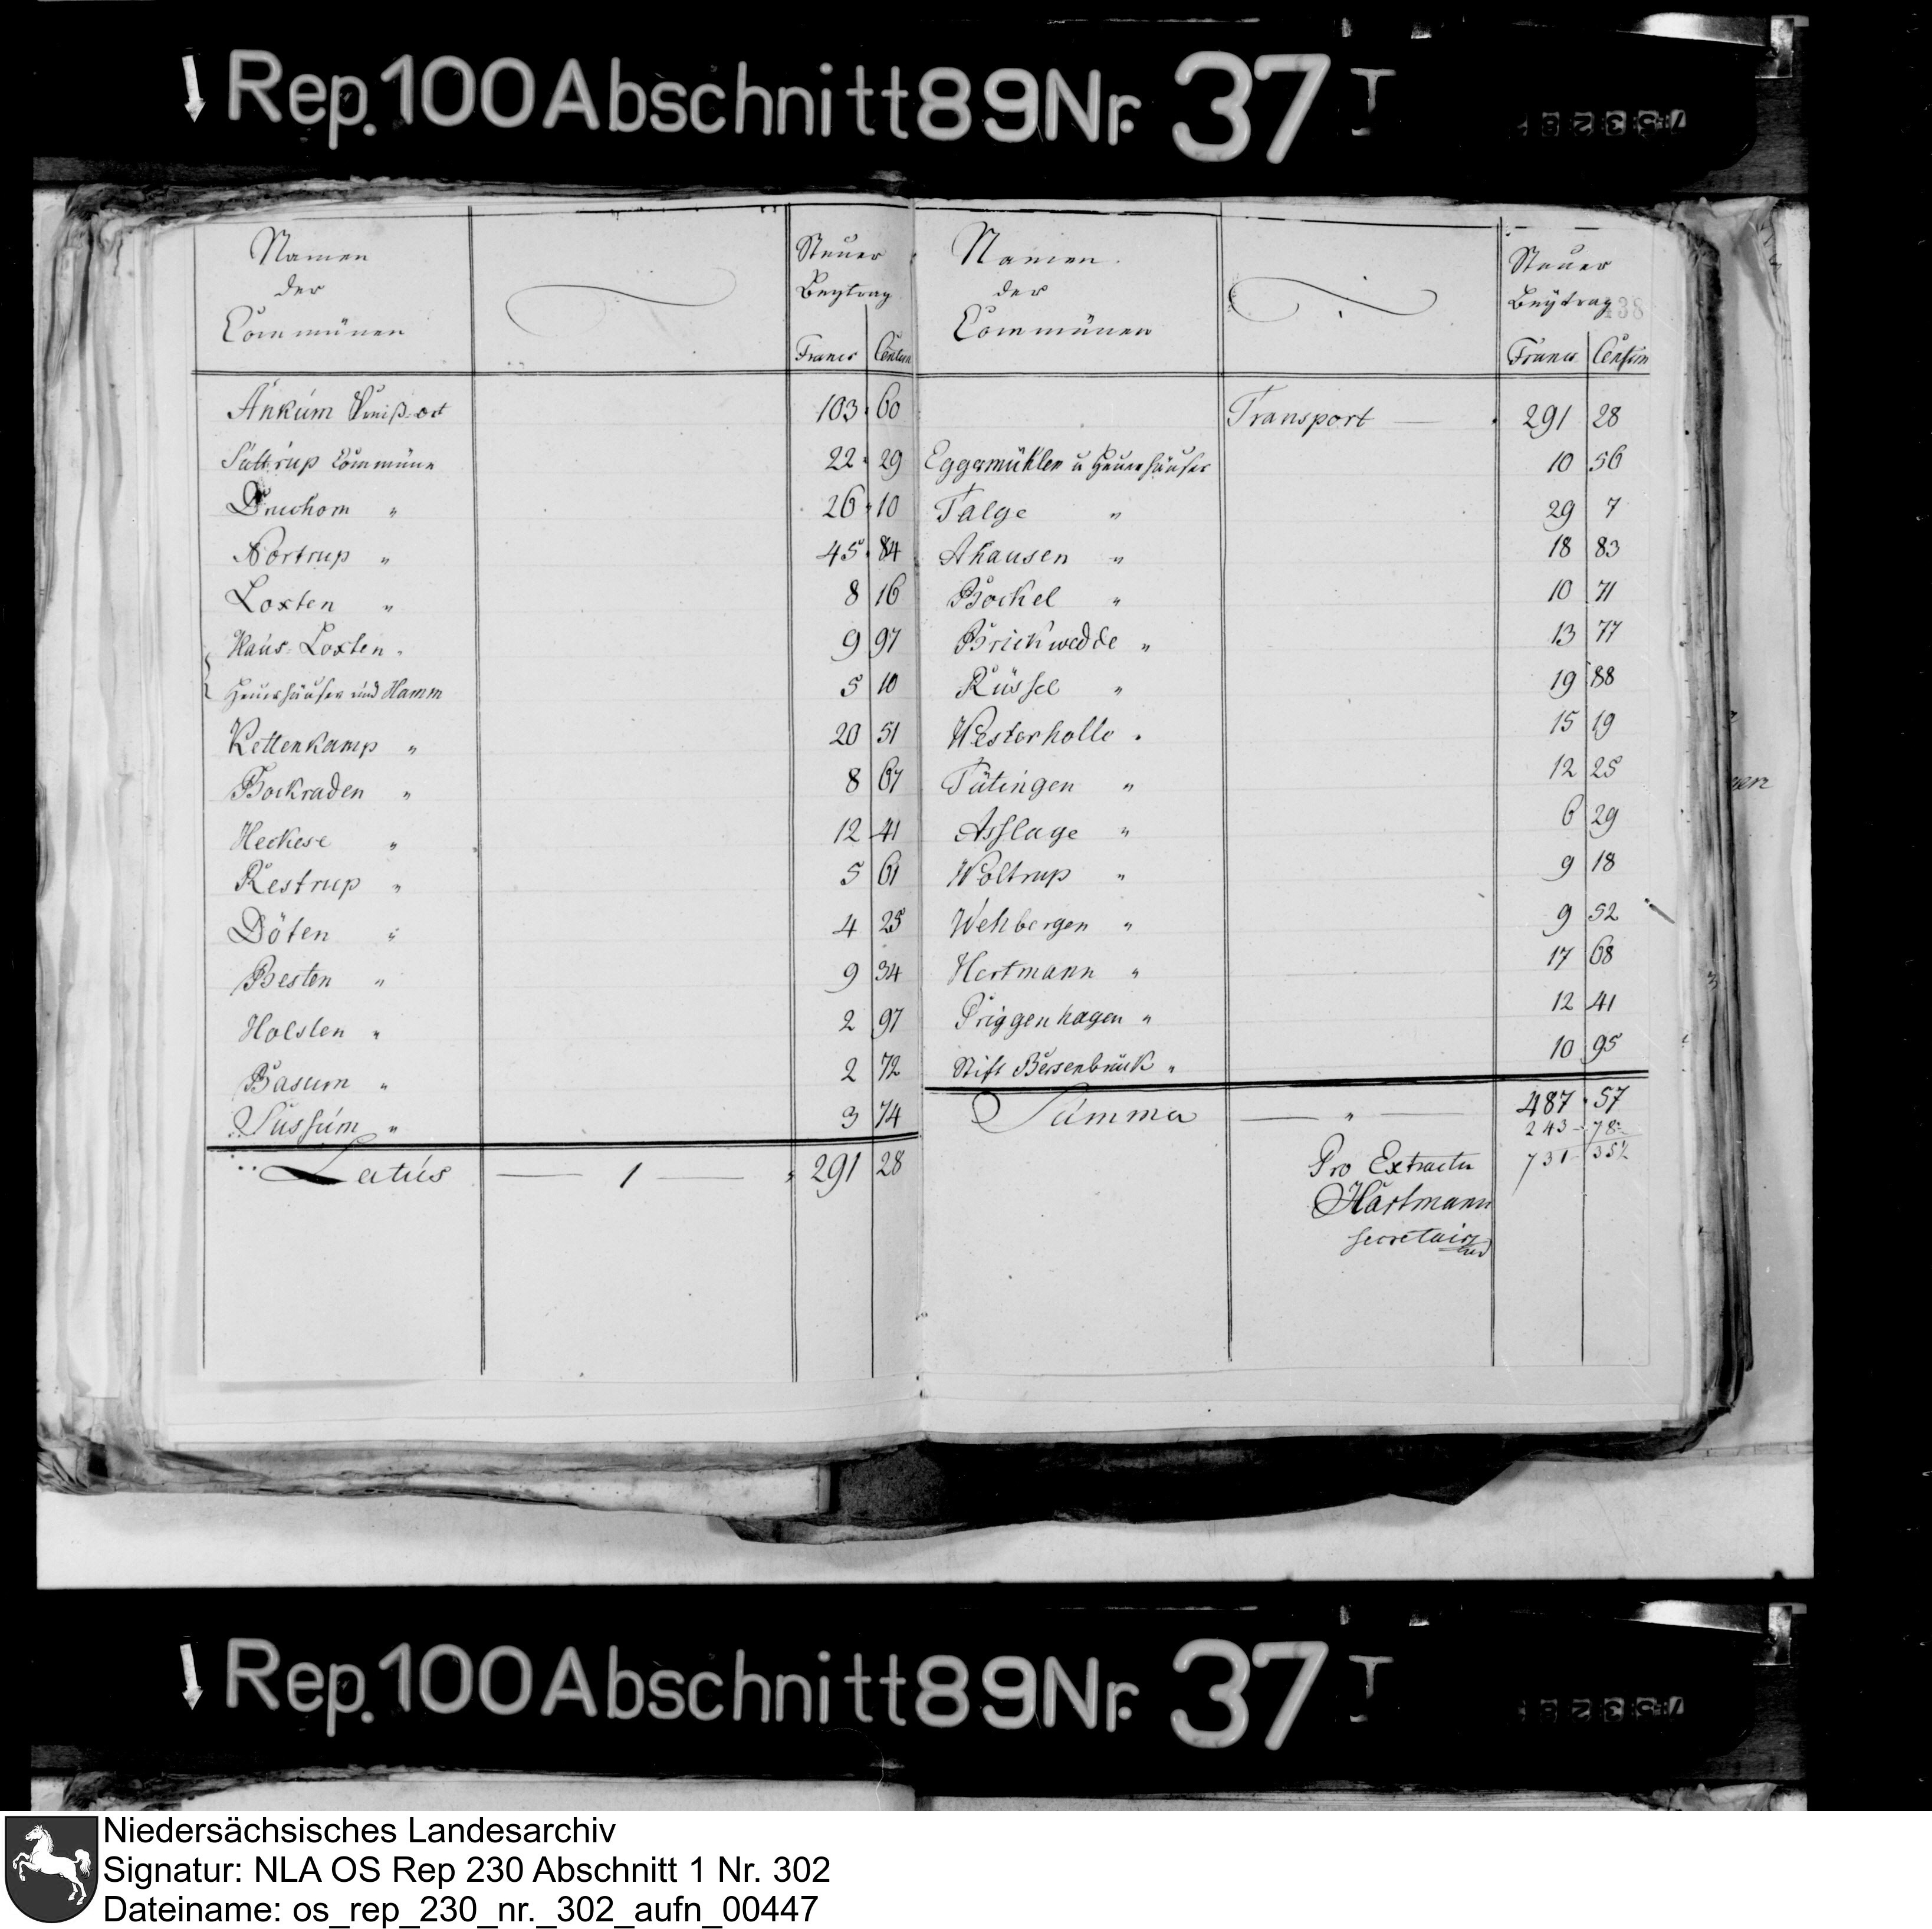 Rep. 100 Abschnitt 89 Nr. 37 I
Namen
der
Communen
Steuer
Beytrag
Francs Centim
Ankum 103 60
Suttrup Commune 22 29
Druchorn " 26 10
Nortrup " 45 84
Loxten " 8 16
Haus Loxten " 9 97
Heuerhäuser und Hamm 5 10
Kettenkamp " 20 51
Bockraden " 8 67
Heckese " 12 41
Restrup " 5 61
Döten " 4 25
Besten " 9 34
Holsten " 2 97
Basum " 2 72
Sussum " 3 74
Latus — 1 — 291 28
Namen
der
Communen
Steuer
Beytrag
Francs Centim
438
Transport — 291 28
Eggermühlen u Heuerhäuser 10 56
Talge " 29 7
Ahausen " 18 83
Bockel " 10 71
Brickwedde " 13 77
Rüssel " 19 88
Westerholte " 15 19
Tütingen " 12 25
Asslage " 6 29
Woltrup " 9 18
Wehbergen " 9 52
Hertmann " 17 68
Priggenhagen " 12 41
Stift Bersenbrück " 10 95
Summa — " — 487 57
243 - 78½
731 - 35½
Pro Extractu
Hartmann
secretair
Rep. 100 Abschnitt 89 Nr. 37 I
Niedersächsisches Landesarchiv
Signatur: NLA OS Rep 230 Abschnitt 1 Nr. 302
Dateiname: os_rep_230_nr._302_aufn_00447